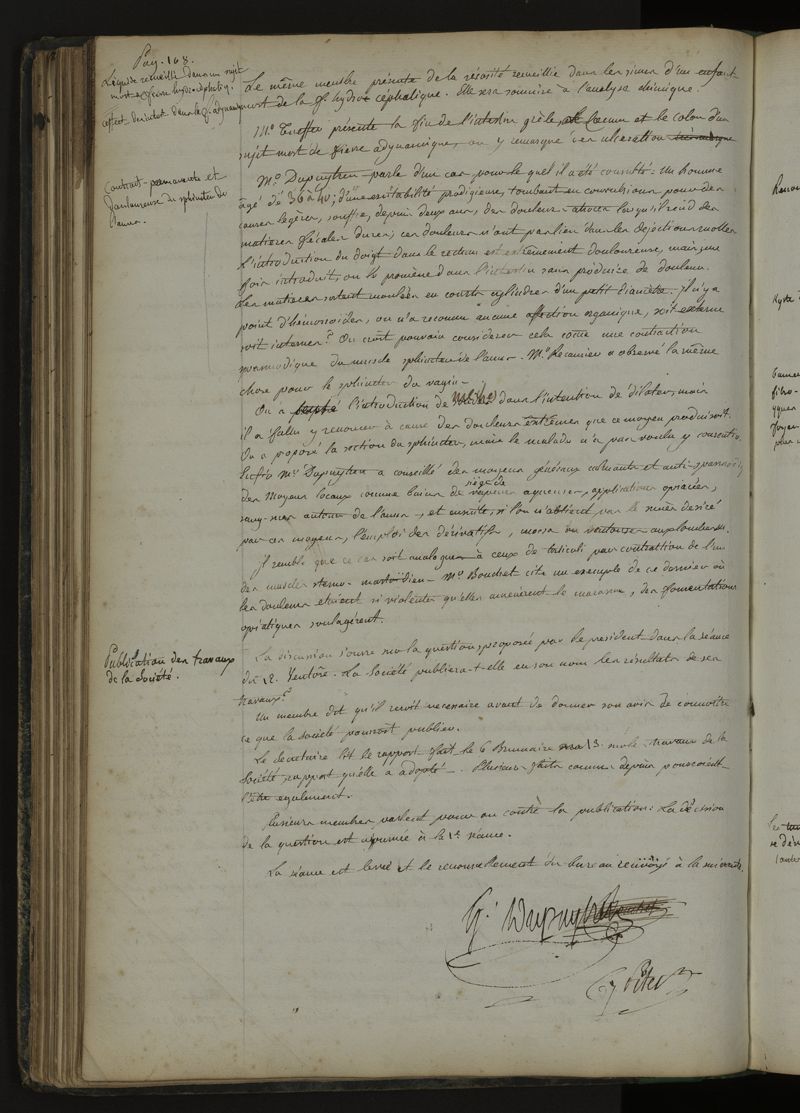 Pag. 168.
Liquide recueilli dans un sujet
mort de fievre hydro-cephaliq.
affect. des intest. dans la f. adynam.
Le même membre présente de la sérosité recueillie dans les sinus d'un enfant
mort de la f. hydro céphalique. Elle sera soumise à l'analyse chimique.
Mr. présente la fin de l'intestin grèle, le Coecum et le colon d'un
sujet mort de fievre adynamique, on y remarque des ulcerations
Contract. permanente et
douloureuse du sphincter de
l'anus.
Mr. Dupuytren parle d'un cas pour lequel il a été consulté. Un homme
âgé de 36 à 40; d'une irritabilité prodigieuse, tombant en convulsions pour des
causes légères, souffre, depuis deux ans, des douleurs atroces lorsqu'il rend des
matieres fécales dures; ces douleurs n'ont pas lieu dans les déjections molles
L'introduction du doigt dans le rectum est extrêmement douloureuse, mais, une
fois introduit, on le promène dans l'intestin sans produire de douleur.
Les matieres sortent moulées en courts cylindres d'un petit diamètre. Il n'y a
point d'hémorroïdes, on n'a reconnu aucune affection organique, soit externe
soit interne. On croit pouvoir considérer cela comme une contraction
spasmodique du muscle sphincter de l'anus. Mr. Récamier a observé la même
chose pour le sphincter du vagin.
On a tenté l'introduction de mèches dans l'intention de dilater, mais
il a fallu y renoncer à cause des douleurs extrêmes que ce moyen produisoit.
On a proposé la section du sphincter, mais le malade n'a pas voulu y consentir.
Enfin Mr. Dupuytren a conseillé des moyens généraux calmants et anti-spasmodiq.
des moyens locaux comme bains de siège de vapeurs aqueuses, applications opiacées,
sangsues autour de l'anus, et ensuite, si l'on n'obtient pas le succès desiré
par ces moyens, l'emploi des dérivatifs, moxa ou ventouses aux lombes.
Il semble que ce cas soit analogue à ceux de torticoli par contraction de l'un
des muscles sterno-mastoïdiens. Mr. Bouchet cite un exemple de ce dernier où
les douleurs étoient si violentes qu'elles amenèrent le marasme, des fomentations
opiatiques soulagèrent.
Publication des travaux
de la Société.
La discussion s'ouvre sur la question proposée par le president dans la séance
du 12. Ventôse. La Société publiera-t-elle en son nom les résultats de ses
travaux?
Un membre dit qu'il seroit necessaire avant de donner son avis de connoitre
ce que la société pourroit publier.
Le Secretaire lit le rapport fait le 6 Brumaire an 13 sur les travaux de la
Société, rapport qu'elle a adopté. Plusieurs faits connus depuis pourroient
l'être egalement.
Plusieurs membres parlent pour ou contre la publication: La décision
de la question est ajournée à la 1re séance.
La séance est levée et le renouvellement du bureau renvoyé à la suivante.
G. Dupuytren